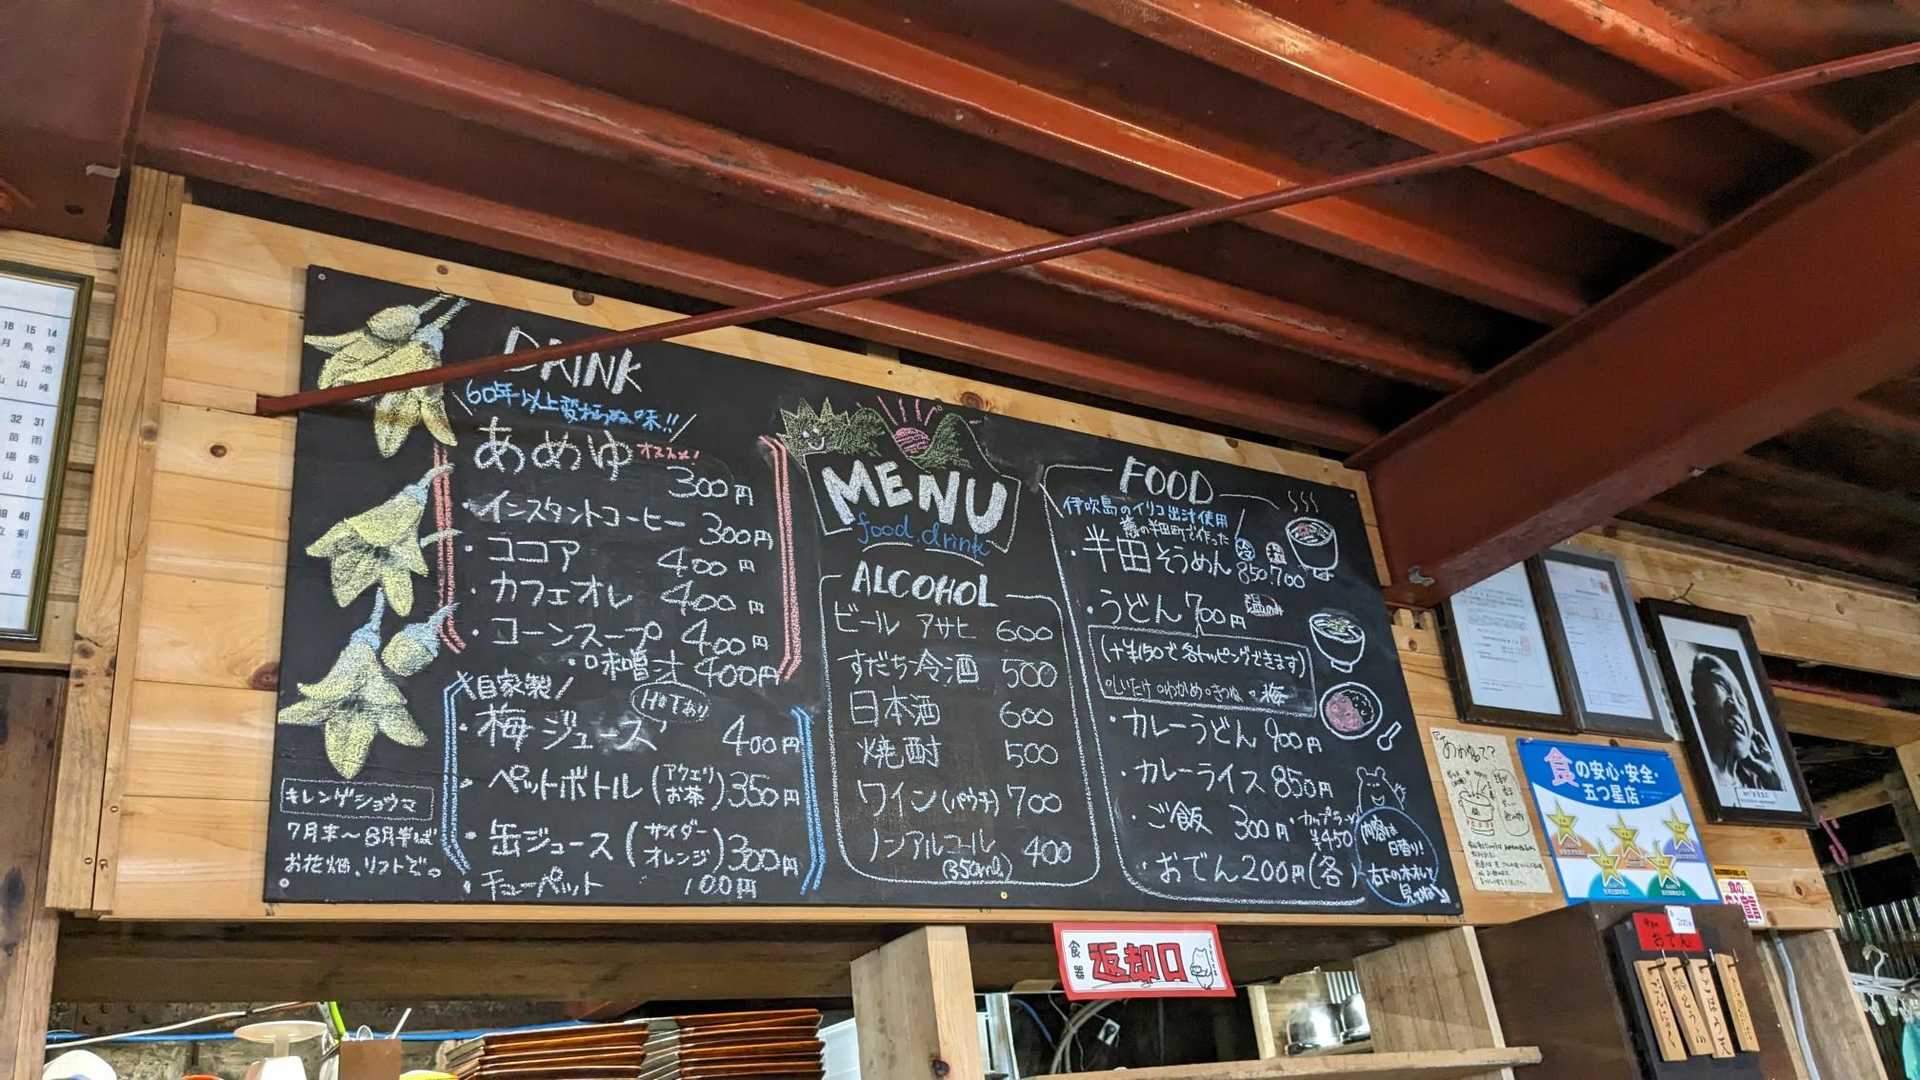 DRINK
60年以上変わらぬ味!!
あめゆ オススメ!
300円
・インスタントコーヒー 300円
・ココア 400円
・カフェオレ 400円
・コーンスープ 400円
・味噌汁 400円
自家製
HOTあり
・梅ジュース 400円
・ペットボトル(アクエリ お茶) 350円
・缶ジュース(サイダー オレンジ) 300円
・チューペット 100円
キレンゲショウマ
7月末〜8月半ば
お花畑、リフトで。
MENU
food.drink
ALCOHOL
ビール アサヒ 600
すだち冷酒 500
日本酒 600
焼酎 500
ワイン(パウチ) 700
ノンアルコール 400
(350ml)
FOOD
伊吹島のイリコ出汁使用
の半田町で作った
・半田そうめん 冷 850 温 700
・うどん 700円
(+¥150で各トッピングできます)
・しいたけ・わかめ・きつね・梅
・カレーうどん 900円
・カレーライス 850円
・ご飯 300円
・カップラーメン ¥450
・おでん 200円(各)
内容は
日替り!
右下の木札を
見てね
あめゆって?
食の安心・安全・
五つ星店
食器
返却口
おでん
こんにゃく
ごぼう天
16 15 14
32 31